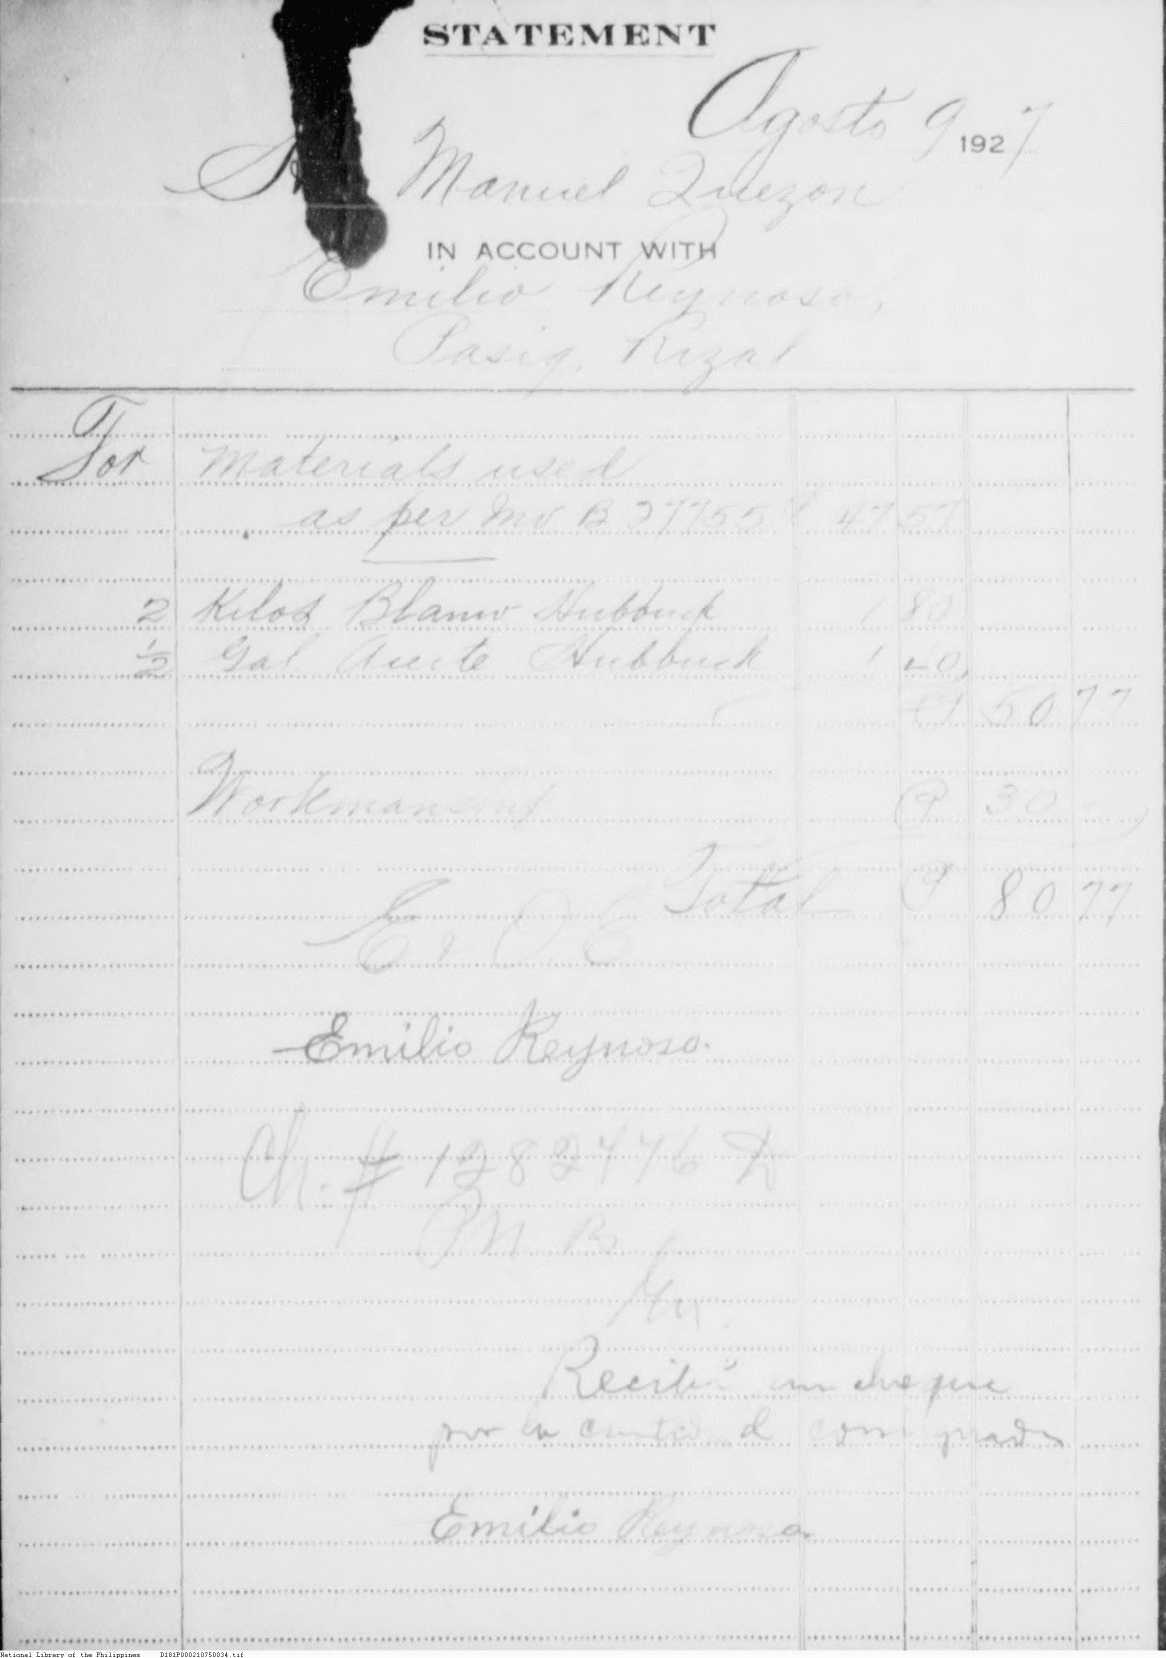 STATEMENT
Agosto 9 1927
Manuel Quezon
IN ACCOUNT WITH
Emilio Reynoso,
Pasig, Rizal
For Materials used
as per Inv B 27755 ₱ 47 57
2 Kilos Blanco Hubbuck 1 80
1/2 Gal Aceite Hubbuck 1 40
₱ 50 77
₱ 30
Total ₱ 80 77
E & O. E
Emilio Reynoso.
Ch. # 1282476 D
P N B
Recibí un cheque
por la cantidad consignada
Emilio Reynoso.
National Library of the Philippines D181P000210750034.tif